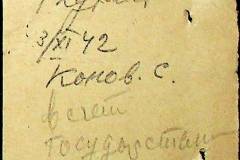 3/XI 42
Конов. С.
в счет
государствен